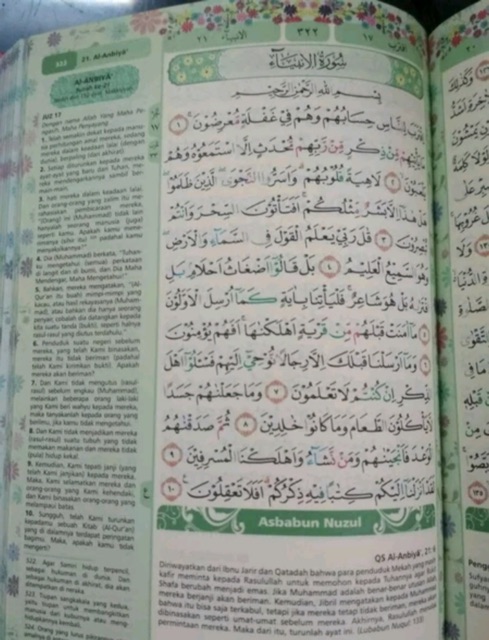 322
21. Al-Anbiyā'
٣٢٢
الانبياء ٢١
١٧
AL-ANBIYĀ'
Surah ke-21
JUZ 17
Dengan nama Allah Yang Maha Pengasih, Maha Penyayang.
1. Telah semakin dekat kepada manusia perhitungan amal mereka, sedang mereka dalam keadaan lalai (dengan dunia), berpaling (dari akhirat).
2. Setiap diturunkan kepada mereka ayat-ayat yang baru dari Tuhan, mereka mendengarkannya sambil bermain-main.
3. Hati mereka dalam keadaan lalai. Dan orang-orang yang zalim itu merahasiakan pembicaraan mereka, "(Orang) ini (Muhammad) tidak lain hanyalah seorang manusia (juga) seperti kamu. Apakah kamu menerima sihir itu padahal kamu menyaksikannya?"
4. Dia (Muhammad) berkata, "Tuhanku mengetahui (semua) perkataan di langit dan di bumi, dan Dia Maha Mendengar, Maha Mengetahui."
5. Bahkan mereka mengatakan, "(Al-Qur'an itu buah) mimpi-mimpi yang kacau, atau hasil rekayasanya (Muhammad), atau bahkan dia hanya seorang penyair, cobalah dia datangkan kepada kita suatu tanda (bukti), seperti halnya rasul-rasul yang diutus terdahulu."
6. Penduduk suatu negeri sebelum mereka, yang telah Kami binasakan, mereka itu tidak beriman (padahal telah Kami kirimkan bukti). Apakah mereka akan beriman?
7. Dan Kami tidak mengutus (rasul-rasul) sebelum engkau (Muhammad), melainkan beberapa orang laki-laki yang Kami beri wahyu kepada mereka, maka tanyakanlah kepada orang yang berilmu, jika kamu tidak mengetahui.
8. Dan Kami tidak menjadikan mereka (rasul-rasul) suatu tubuh yang tidak memakan makanan dan mereka tidak (pula) hidup kekal.
9. Kemudian, Kami tepati janji (yang telah Kami janjikan) kepada mereka. Maka, Kami selamatkan mereka dan orang-orang yang Kami kehendaki, dan Kami binasakan orang-orang yang melampaui batas.
10. Sungguh, telah Kami turunkan kepadamu sebuah Kitab (Al-Qur'an) yang di dalamnya terdapat peringatan bagimu. Maka, apakah kamu tidak mengerti?
سُورَةُ الْاَنْبِيَاءِ
بِسْمِ اللهِ الرَّحْمٰنِ الرَّحِيْمِ
اِقْتَرَبَ لِلنَّاسِ حِسَابُهُمْ وَهُمْ فِيْ غَفْلَةٍ مُّعْرِضُوْنَ ١
مَا يَأْتِيْهِمْ مِّنْ ذِكْرٍ مِّنْ رَّبِّهِمْ مُّحْدَثٍ اِلَّا اسْتَمَعُوْهُ وَهُمْ
يَلْعَبُوْنَ ٢ لَاهِيَةً قُلُوْبُهُمْ وَاَسَرُّوا النَّجْوَى الَّذِيْنَ ظَلَمُوْا
هَلْ هٰذَآ اِلَّا بَشَرٌ مِّثْلُكُمْ اَفَتَأْتُوْنَ السِّحْرَ وَاَنْتُمْ
تُبْصِرُوْنَ ٣ قٰلَ رَبِّيْ يَعْلَمُ الْقَوْلَ فِى السَّمَاۤءِ وَالْاَرْضِ
وَهُوَ السَّمِيْعُ الْعَلِيْمُ ٤ بَلْ قَالُوْٓا اَضْغَاثُ اَحْلَامٍ بَلِ
افْتَرٰىهُ بَلْ هُوَ شَاعِرٌ فَلْيَأْتِنَا بِاٰيَةٍ كَمَآ اُرْسِلَ الْاَوَّلُوْنَ
٥ مَآ اٰمَنَتْ قَبْلَهُمْ مِّنْ قَرْيَةٍ اَهْلَكْنٰهَا اَفَهُمْ يُؤْمِنُوْنَ
٦ وَمَآ اَرْسَلْنَا قَبْلَكَ اِلَّا رِجَالًا نُّوْحِيْٓ اِلَيْهِمْ فَسْـَٔلُوْٓا اَهْلَ
الذِّكْرِ اِنْ كُنْتُمْ لَا تَعْلَمُوْنَ ٧ وَمَا جَعَلْنٰهُمْ جَسَدًا
لَّا يَأْكُلُوْنَ الطَّعَامَ وَمَا كَانُوْا خٰلِدِيْنَ ٨ ثُمَّ صَدَقْنٰهُمُ
الْوَعْدَ فَاَنْجَيْنٰهُمْ وَمَنْ نَّشَاۤءُ وَاَهْلَكْنَا الْمُسْرِفِيْنَ ٩
لَقَدْ اَنْزَلْنَآ اِلَيْكُمْ كِتٰبًا فِيْهِ ذِكْرُكُمْ اَفَلَا تَعْقِلُوْنَ ١٠
Asbabun Nuzul
QS Al-Anbiya', 21: 6
Diriwayatkan dari Ibnu Jarir dan Qatadah bahwa para penduduk Mekah yang
kafir meminta kepada Rasulullah untuk memohon kepada Tuhannya agar bukit
Shafa berubah menjadi emas. Jika Muhammad adalah benar-benar utusan Allah
mereka berjanji akan beriman. Kemudian, Jibril mengatakan kepada Muhammad
bahwa itu bisa saja terkabul, tetapi jika mereka tetap tidak beriman, mereka akan
dibinasakan seperti umat-umat sebelum mereka. Akhirnya, Rasulullah menolak
permintaan mereka. Maka dari itu, turunlah ayat ini. (Lubabun Nuzul: 133)